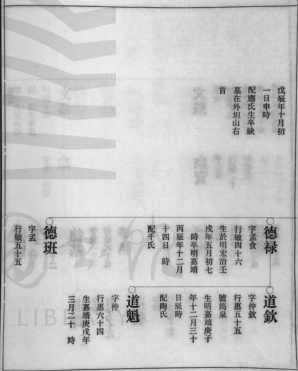 戊辰年十月初
一日申時
配應氏生卒缺
墓在外坦山右
首
德祿
字孟食
行敏四十六
生於明宏治壬
戌年五月初七
時卒明嘉靖
丙辰年十二月
十四日 時
配千氏
德班
字孟
行敏五十五
道欽
字仲欽
行惠五十五
號筠泉
生明嘉靖庚子
年十二月三十
日辰時
配陶氏
道魁
字仲
行惠六十四
生嘉靖庚戌年
三月二十 時
LIB